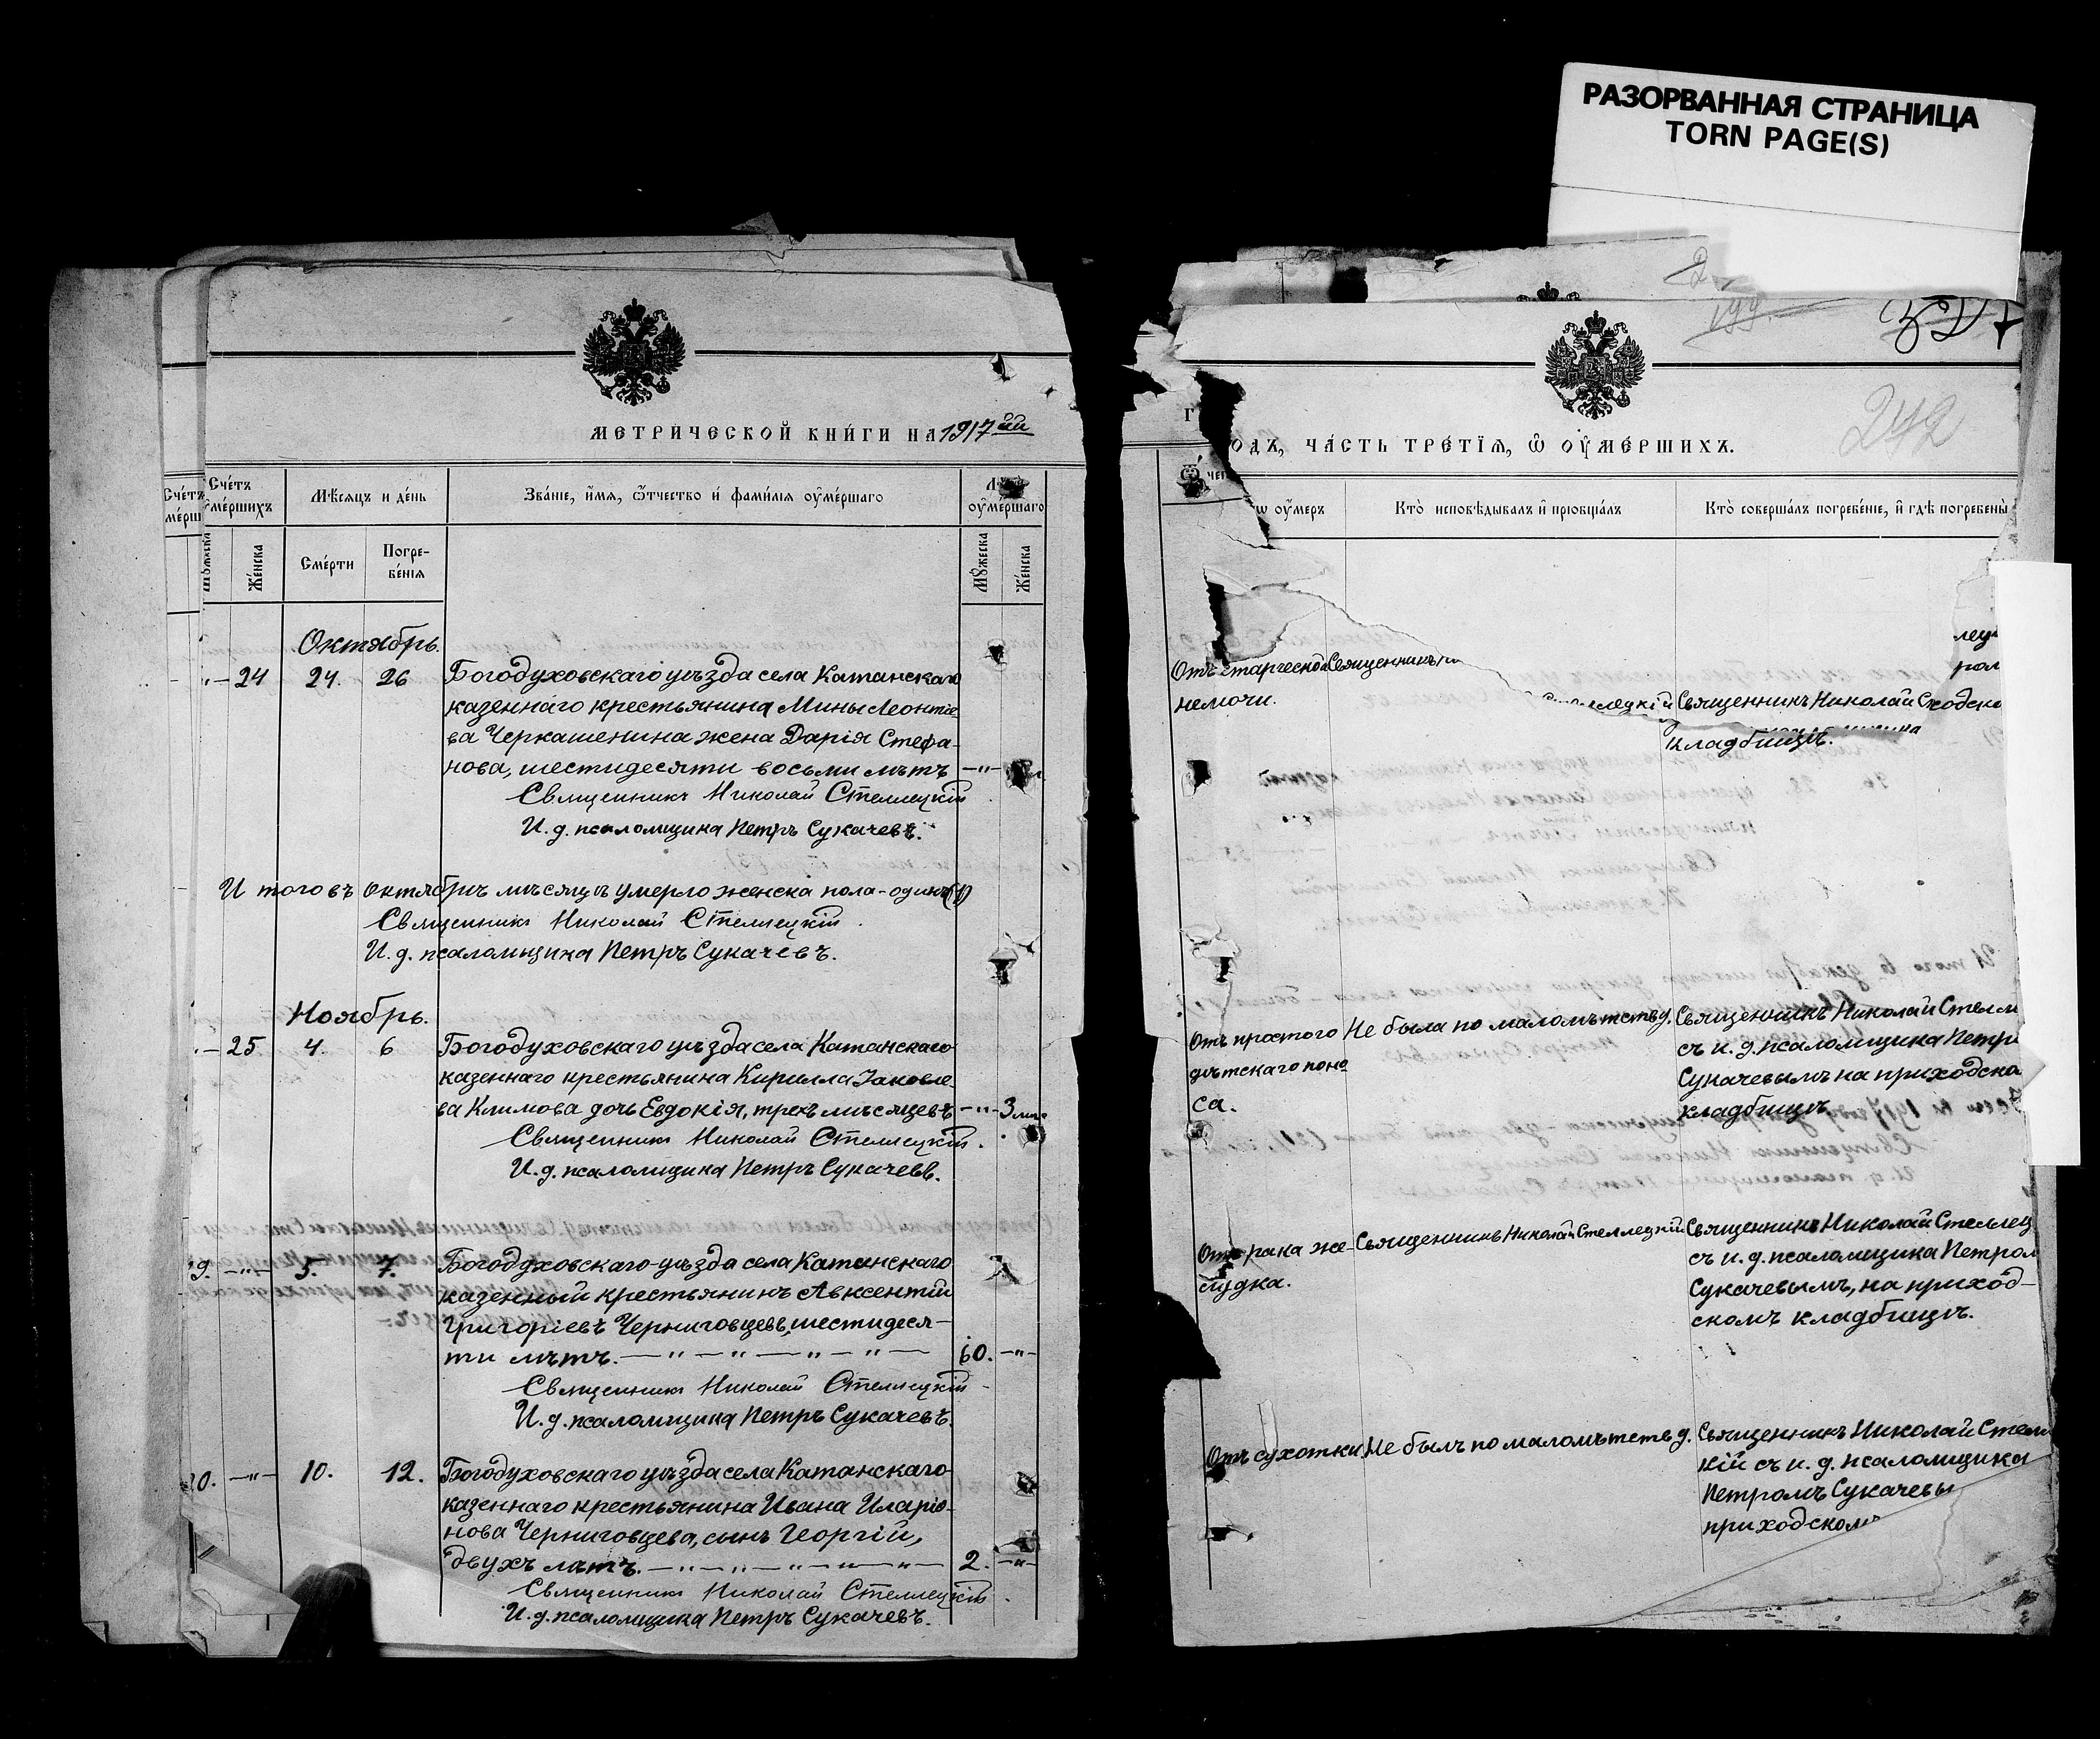 РАЗОРВАННАЯ СТРАНИЦА
TORN PAGE(S)
МЕТРИЧЕСКОЙ КНИГИ НА 1917ый
Счетъ умершихъ
Мѣсяцъ и день
Званіе, имя, отчество и фамилія умершаго
умершаго
Мужеска
Женска
Смерти
Погребенія
Мужеска
Женска
Октябрь.
24 24. 26 Богодуховскаго уѣзда села Катанскаго
казеннаго крестьянина Мины Леонтіе-
ва Черкашенина жена Дарія Стефа-
нова, шестидесяти восьми лѣтъ —"—
Священникъ Николай Стеллецкій
И. д. псаломщика Петръ Сукачевъ.
И того въ октябрѣ мѣсяцѣ умерло женска пола - одинъ (1)
Священникъ Николай Стеллецкій.
И. д. псаломщика Петръ Сукачевъ.
Ноябрь.
25 4. 6 Богодуховскаго уѣзда села Катанскаго
казеннаго крестьянина Кирилла Іаковле-
ва Климова дочь Евдокія, трехъ мѣсяцевъ —"— 3 мѣс.
Священникъ Николай Стеллецкій.
И. д. псаломщика Петръ Сукачевъ.
9. —"— 5. 7. Богодуховскаго уѣзда села Катанскаго
казенный крестьянинъ Авксентій
Григоріевъ Черниговцевъ, шестидеся-
ти лѣтъ. —"—"—"—"— 60. —"—
Священникъ Николай Стеллецкій
И. д. псаломщика Петръ Сукачевъ.
0. —"— 10. 12. Богодуховскаго уѣзда села Катанскаго
казеннаго крестьянина Ивана Иларіо-
нова Черниговцева, сынъ Георгій,
двухъ лѣтъ. —"—"—"—"— 2. —"—
Священникъ Николай Стеллецкій.
И. д. псаломщика Петръ Сукачевъ.
199.
242
одъ, ЧАСТЬ ТРЕТІЯ, Ѿ ОУМЕРШИХЪ.
умеръ
Кто исповѣдывалъ и пріобщалъ
Кто совершалъ погребеніе, и гдѣ погребены
Отъ старческой Священникъ
немочи.
Священникъ Николай
кладбищѣ.
Отъ простого Не была по малолѣтству. Священникъ Николай Стелл
дѣтскаго поно- съ и. д. псаломщика Петро
са. Сукачевымъ на приходско
кладбищѣ
Отъ рака же- Священникъ Николай Стеллецкій Священникъ Николай Стеллец
лудка. съ и. д. псаломщика Петром
Сукачевымъ, на приход-
скомъ кладбищѣ.
Отъ сухотки. Не былъ по малолѣтству. Священникъ Николай Стелл
кій съ и. д. псаломщика
Петромъ Сукачевы
приходском